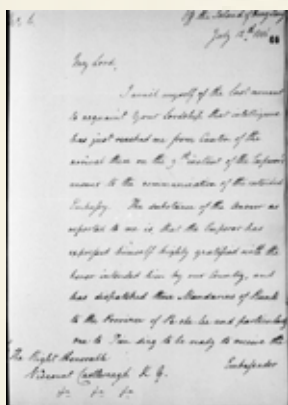 Off the Island of Hong Kong
July 12th 1816
My Lord,
I avail myself of the last moment
to acquaint Your Lordship that intelligence
has just reached me from Canton of the
arrival there on the 9th instant of the Emperor's
answer to the communication of the intended
Embassy. The substance of the answer as
reported to me is, that the Emperor has
expressed himself highly gratified with the
honor intended him by our Country, and
has dispatched three Mandarins of Rank
to the Province of Pe-che-lee and particularly
one to Tien-sing to be ready to receive the
Embassador
The Right Honorable
Viscount Castlereagh K. G.